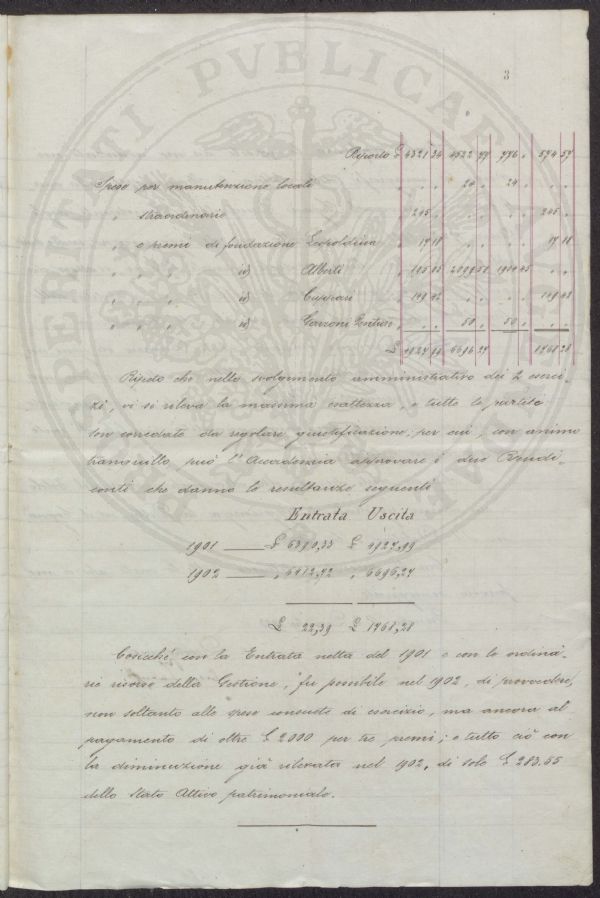 3
Riporto £ 4321 34 4522 77 776 „ 574 57
Spese per manutenzione locali „ . . 24 „ 24 „ . .
„ straordinarie „ 245 „ . . . . 245 „
„ e premi di fondazione Leopoldina „ 17 18 . . . . 17 18
„ „ „ id Alberti „ 195 05 2099 50 1904 45 . .
„ „ „ id Cuppari „ 149 42 . . . . 149 42
„ „ „ id Garzoni Venturi „ . . 50 „ 50 „ . .
£ 4927 99 6696 27 1768 28
Ripeto che nello svolgimento amministrativo dei 2 eserci-
zi, vi si rileva la massima esattezza, e tutte le partite
son corredate da regolare giustificazione; per cui, con animo
tranquillo può l'Accademia approvare i due Rendi-
conti che danno le resultanze seguenti
Entrata Uscita
1901 £ 6390,33 £ 4927,99
1902 „ 6412,72 „ 6696,27
£ 22,39 £ 1768,28
Cosicché con la Entrata netta del 1901 e con le ordina-
rie risorse della Gestione, fu possibile nel 1902, di provvedere,
non soltanto alle spese consuete di esercizio, ma ancora al
pagamento di oltre £ 2000 per tre premi; e tutto ciò con
la diminuzione già rilevata nel 1902, di sole £ 283.55
dello Stato Attivo patrimoniale.
PROSPERITATI PVBLICAE AVGENDAE